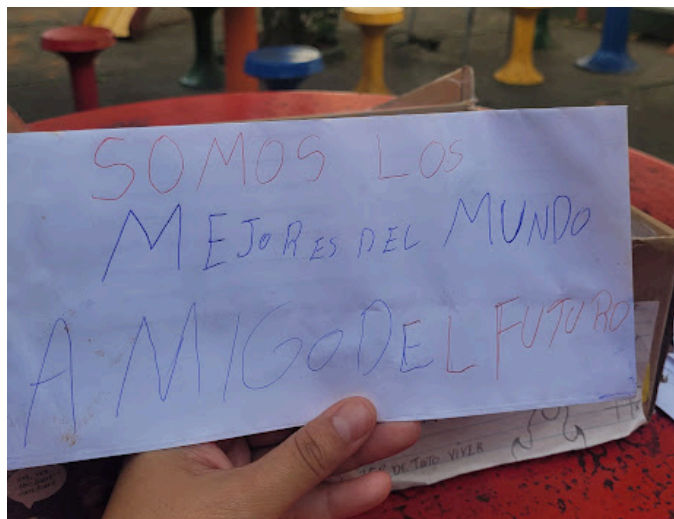 SOMOS LOS
MEJORES DEL MUNDO
AMIGO DEL FUTURO
DE TOTO VIVER